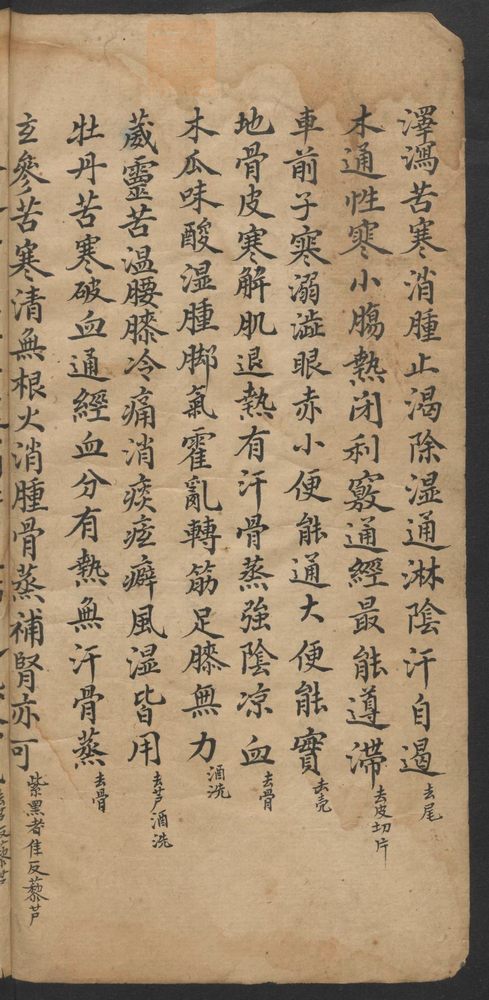 澤瀉苦寒消腫止渴除湿通淋陰汗自遏 去尾
木通性寒小腸熱闭利竅通經最能導滞 去皮切片
車前子寒溺澁眼赤小便能通大便能實 去壳
地骨皮寒解肌退熱有汗骨蒸強陰凉血 去骨
木瓜味酸湿腫脚氣霍亂轉筋足膝無力 酒洗
葳靈苦温腰膝冷痛消痰痃癖風湿皆用 去芦酒洗
牡丹苦寒破血通經血分有熱無汗骨蒸 去骨
玄參苦寒清無根火消腫骨蒸補腎亦可 紫黑者佳反藜芦